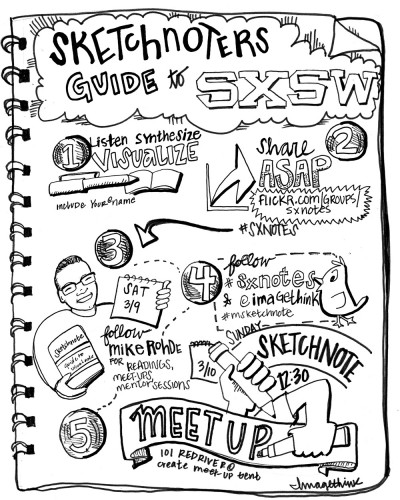 SKETCHNOTERS
GUIDE to SXSW
1
Listen Synthesize
VISUALIZE
include your @name
2
share
ASAP
FLICKR.COM/GROUPS/
SXNOTES
#SXNOTES
3
SAT
3/9
Sketchnote
follow
MIKE ROHDE
FOR
READINGS,
MEET-UPS,
mentor SESSIONS
4
follow
#sxnotes
& @imagethink
#msketchnote
SUNDAY
3/10
SKETCHNOTE
12:30
5
MEET UP
101 REDRIVER @
create meet-up tent
Imagethink